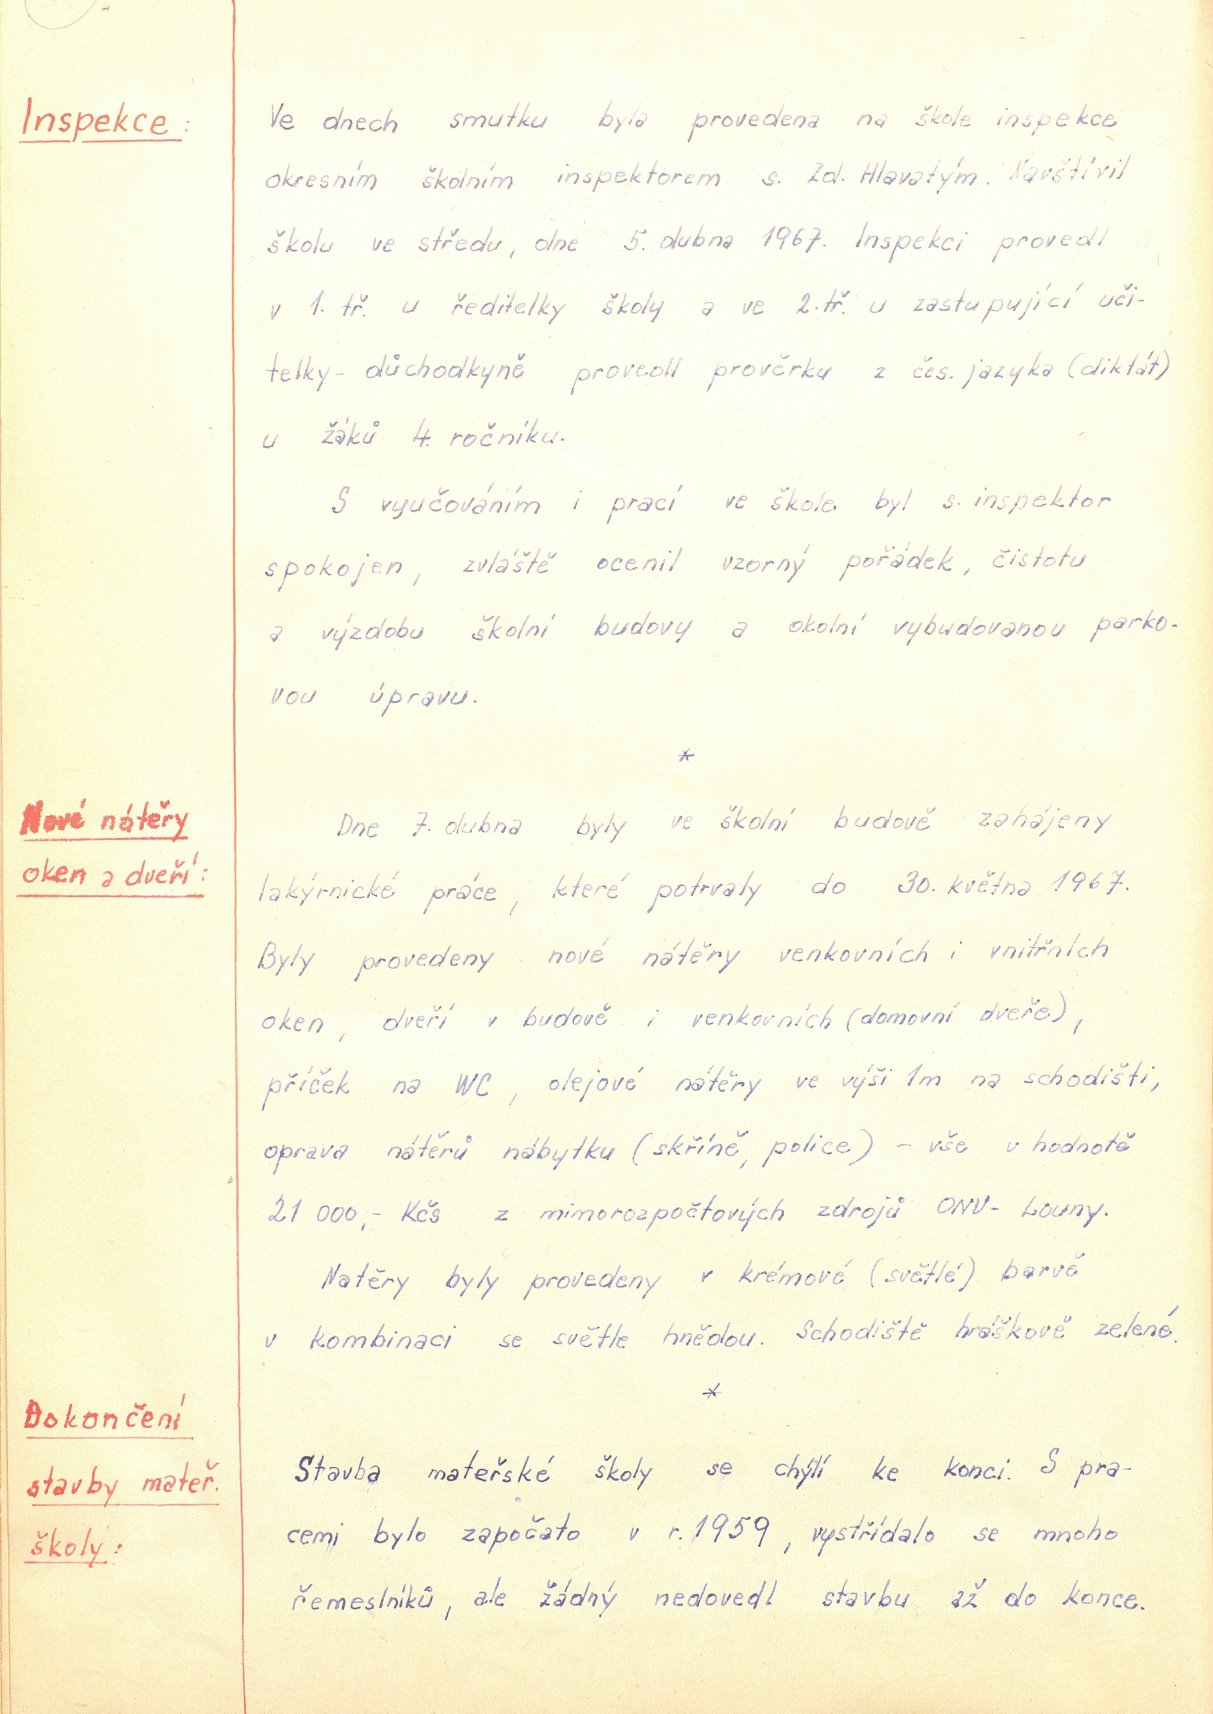 Inspekce:
Ve dnech smutku byla provedena na škole inspekce
okresním školním inspektorem s. Zd. Hlavatým. Navštívil
školu ve středu, dne 5. dubna 1967. Inspekci provedl
v 1. tř. u ředitelky školy a ve 2. tř. u zastupující uči-
telky - důchodkyně provedl prověrku z čes. jazyka (diktát)
u žáků 4. ročníku.
S vyučováním i prací ve škole byl s. inspektor
spokojen, zvláště ocenil vzorný pořádek, čistotu
a výzdobu školní budovy a okolní vybudovanou parko-
vou úpravu.
*
Nové nátěry
oken a dveří:
Dne 7. dubna byly ve školní budově zahájeny
lakýrnické práce, které potrvaly do 30. května 1967.
Byly provedeny nové nátěry venkovních i vnitřních
oken, dveří v budově i venkovních (domovní dveře),
příček na WC, olejové nátěry ve výši 1m na schodišti,
oprava nátěrů nábytku (skříně, police) - vše v hodnotě
21 000,- Kčs z mimorozpočtových zdrojů ONV - Louny.
Natěry byly provedeny v krémové (světlé) barvě
v kombinaci se světle hnědou. Schodiště hráškově zelené.
*
Dokončení
stavby mateř.
školy:
Stavba mateřské školy se chýlí ke konci. S pra-
cemi bylo započato v r. 1959, vystřídalo se mnoho
řemeslníků, ale žádný nedovedl stavbu až do konce.